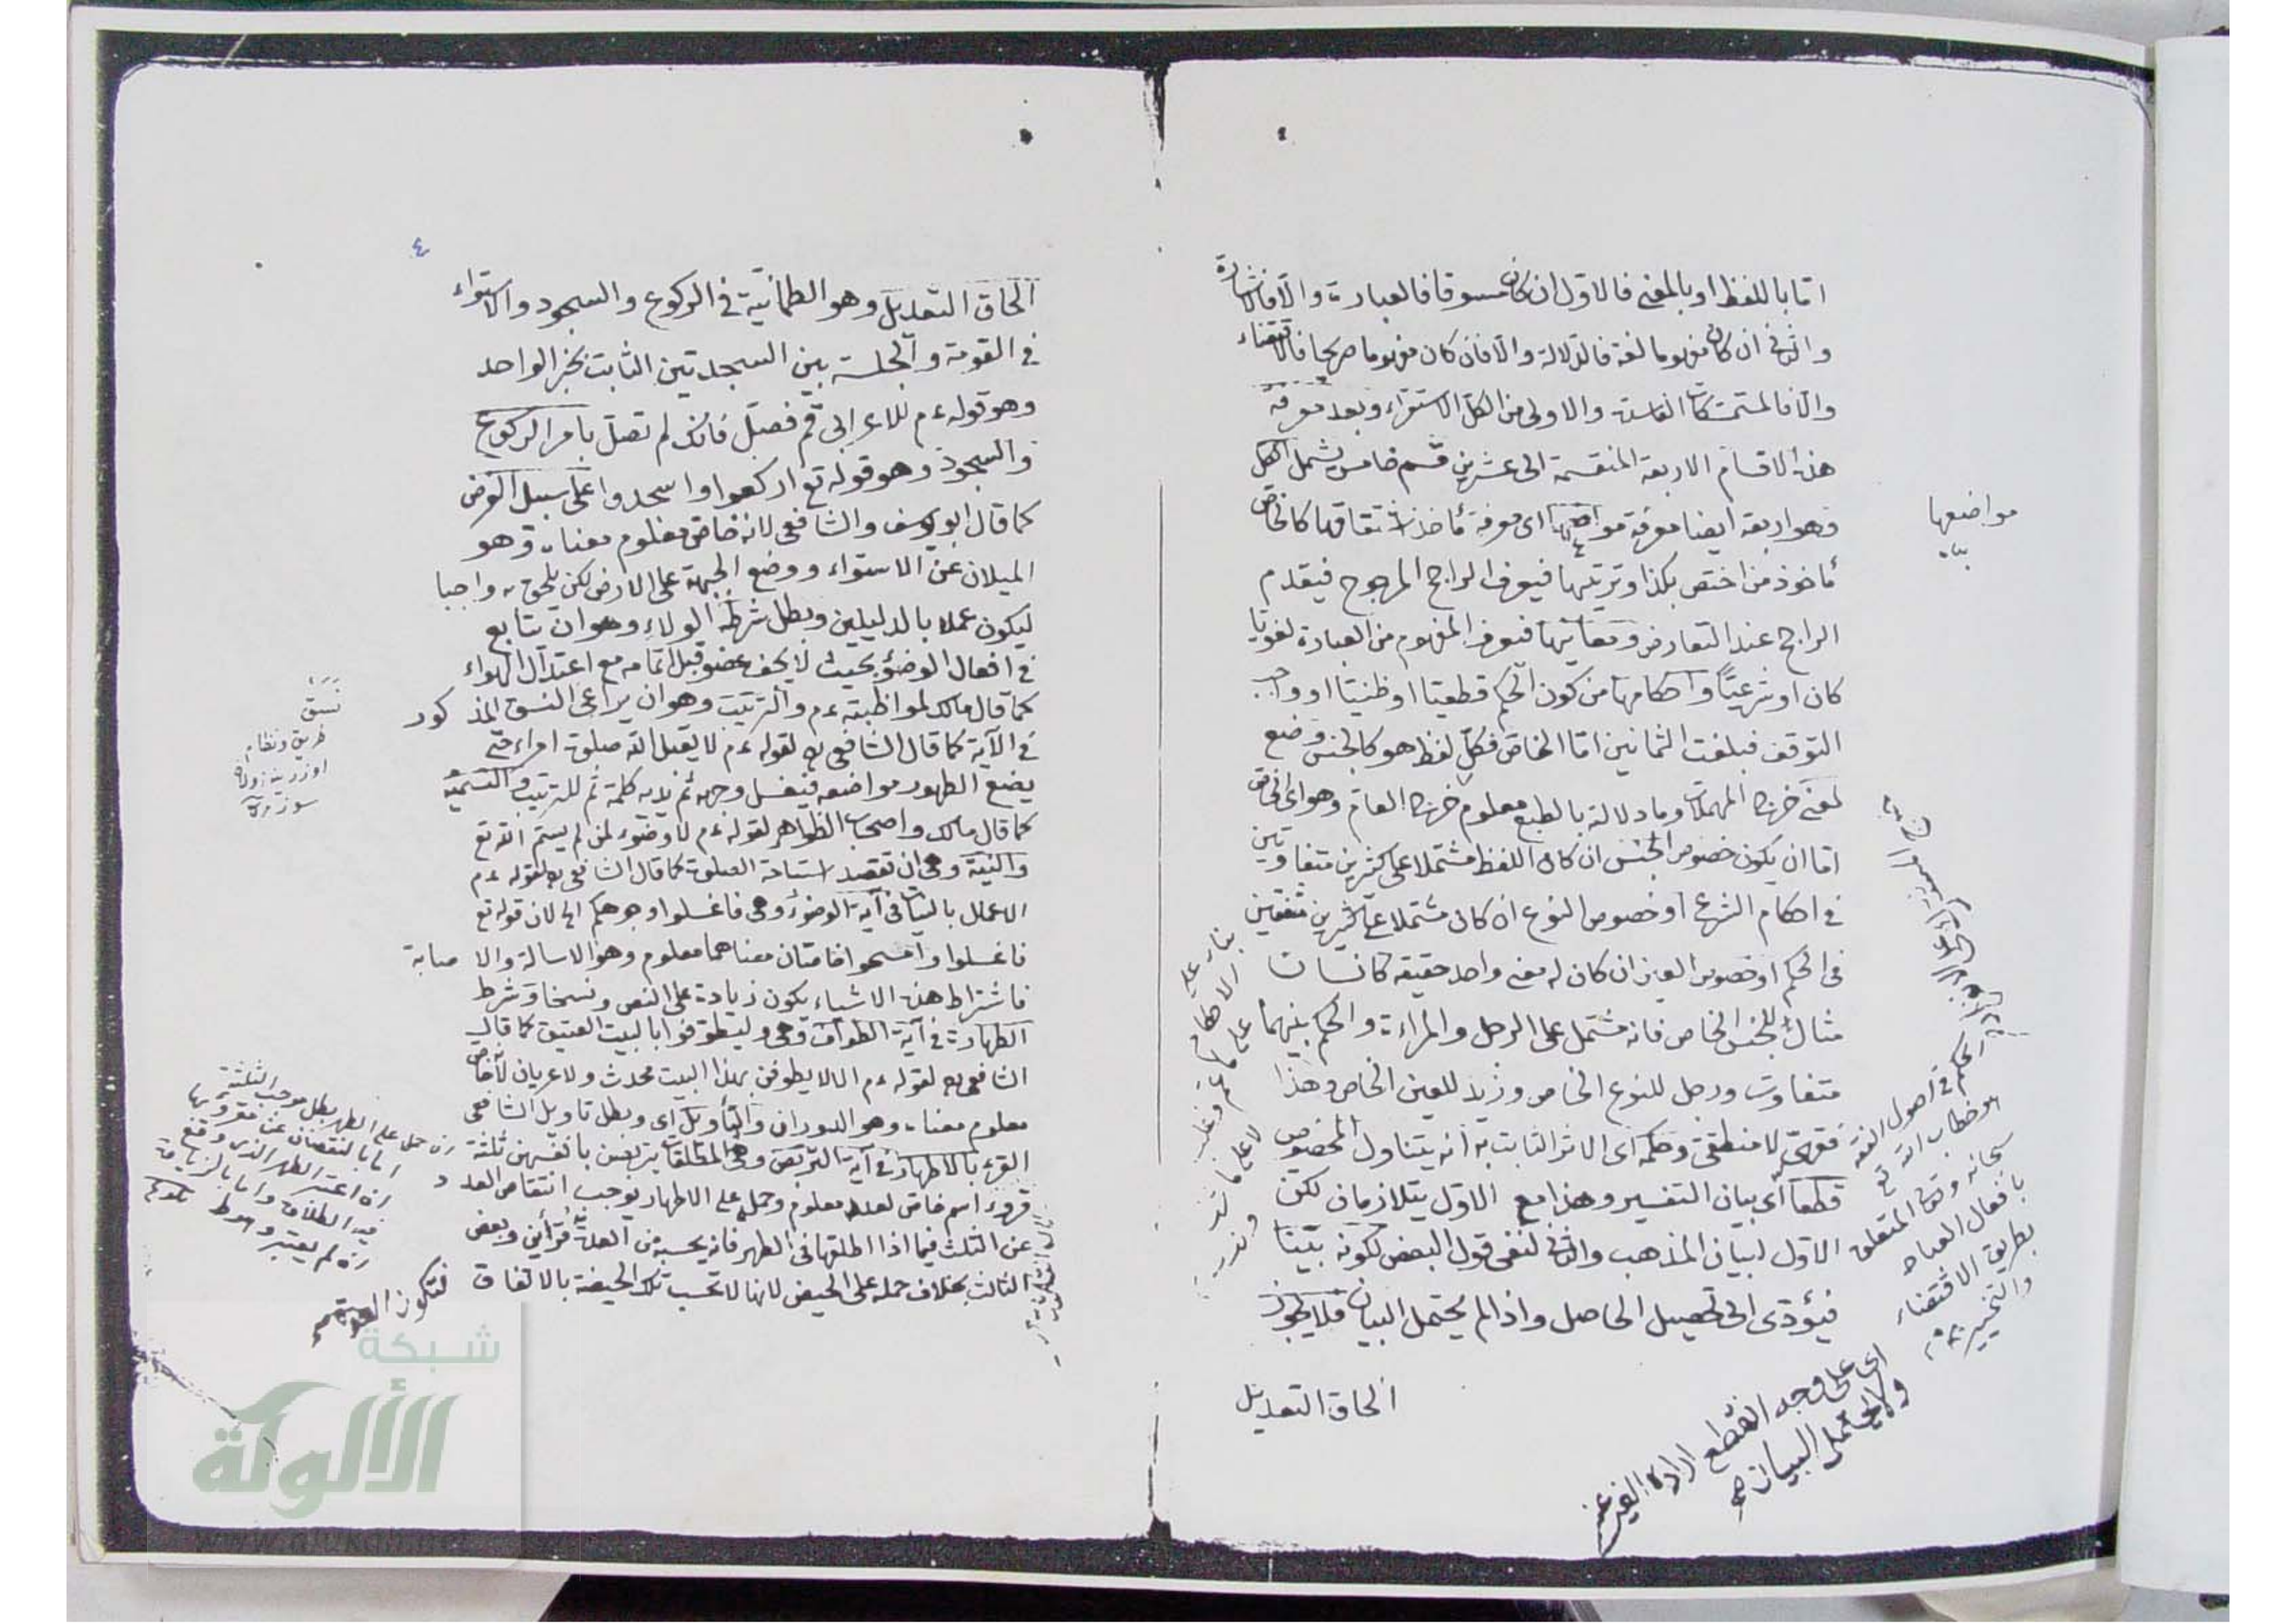 اما باللفظ او بالمعنى فالاول ان كان مسوقا فالعبارة والا فالاشارة
والثانى ان كان مفهوما لغة فالدلالة والا فان كان مفهوما صريحا فالاقتضاء
والا فالمتمسكات الفاسدة والاولى من الكل الاستقراء وبعد معرفة
هذه الاقسام الاربعة المنقسمة الى عشرين قسم خامس يشمل الكل
وهو اربعة ايضا معرفة مواضعها اى معرفة مأخذ اشتقاقها كالخاص
مأخوذ من اختص بكذا وترتيبها فيعرف الراجح المرجوح فيقدم
الراجح عند التعارض ومعانيها فيعرف المفهوم من العبارة لغويا
كان او شرعيا واحكامها من كون الحكم قطعيا او ظنيا او واجب
التوقف فبلغت الثمانين اما الخاص فكل لفظ هو كالجنس وضع
لمعنى خرج المهملات وما دلالته بالطبع معلوم خرج العام وهو اى الخاص
اما ان يكون خصوص الجنس ان كان اللفظ مشتملا على كثيرين متفاوتين
فى احكام الشرع او خصوص النوع ان كان مشتملا على كثيرين متفقين
فى الحكم او خصوص العين ان كان له معنى واحد حقيقة كانسان
مثال للجنس الخاص فانه مشتمل على الرجل والمراءة والحكم بينهما
متفاوت ورجل للنوع الخاص وزيد للعين الخاص وهذا
فقهى لا منطقى وحكمه اى الاثر الثابت به انه يتناول المخصوص
قطعا اى بيان التفسير وهذا مع الاول يتلازمان لكن
الاول لبيان المذهب والثانى لنفى قول البعض لكونه بينا
فيؤدى الى تحصيل الحاصل واذا لم يحتمل البيان فلا يجوز
الحاق التعديل
مواضعها
الحكم فى اصول الفقه
هو خطاب الله تع
سبحانه وتعالى المتعلق
بافعال العباد
بطريق الاقتضاء
والتخيير
اى على وجه القطع ارادة الغير عنه
ولا يحتمل البيان
٤
الحاق التعديل وهو الطمانية فى الركوع والسجود والاستواء
فى القومة والجلسة بين السجدتين الثابت بخبر الواحد
وهو قوله ءم للاعرابى قم فصل فانك لم تصل بامر الركوع
والسجود وهو قوله تع اركعوا واسجدوا على سبيل الفرض
كما قال ابو يوسف والشافعى لانه خاص معلوم معناه وهو
الميلان عن الاستواء ووضع الجبهة على الارض لكن يلحق به واجبا
ليكون عملا بالدليلين وبطل شرط الولاء وهو ان يتابع
فى افعال الوضؤ بحيث لا يجف عضو قبل اتمامه مع اعتدال الهواء
كما قال مالك لمواظبته ءم والترتيب وهو ان يراعى النسق المذكور
فى الآية كما قال الشافعى لقوله ءم لا يقبل الله صلوة امراء حتى
يضع الطهور مواضعه فيغسل وجهه ثم يديه كلمة ثم للترتيب والتسمية
كما قال مالك واصحاب الظواهر لقوله ءم لا وضوء لمن لم يسم الله تع
والنية وهى ان تقصد استباحة الصلوة كما قال الشافعى لقوله ءم
الاعمال بالنيات فى آية الوضؤ وهى فاغسلوا وجوهكم الخ لان قوله تع
فاغسلوا وامسحوا خاصان معناهما معلوم وهو الاسالة والاصابة
فاشتراط هذه الاشياء يكون زيادة على النص ونسخا وشرط
الطهارة فى آية الطواف وهى وليطوفوا بالبيت العتيق كما قال
الشافعى لقوله ءم الا لا يطوفن بهذا البيت محدث ولا عريان لانه خاص
معلوم معناه وهو الدوران والتأويل اى وبطل تاويل الشافعى
القرء بالاطهار فى آية التربص وهى المطلقات يتربصن بانفسهن ثلثة
قروء اسم خاص لعدد معلوم وحمله على الاطهار يوجب انتقاص العدد
عن الثلث فيما اذا اطلقها فى الطهر فانه يحسبه من العدة قرأين وبعض
الثالث بخلاف حمله على الحيض لانها لا تحسب تلك الحيضة بالاتفاق
نسق
طريق ونظام
ان حمل على الطهر بطل موجب الثلثة
اما بالنقصان عن
ان اعتبر الطهر الذى وقع
فيه الطلاق واما بالزيادة
ان لم يعتبر وهو
لتكون العدة
شبكة
الألوكة
www.alukah.net